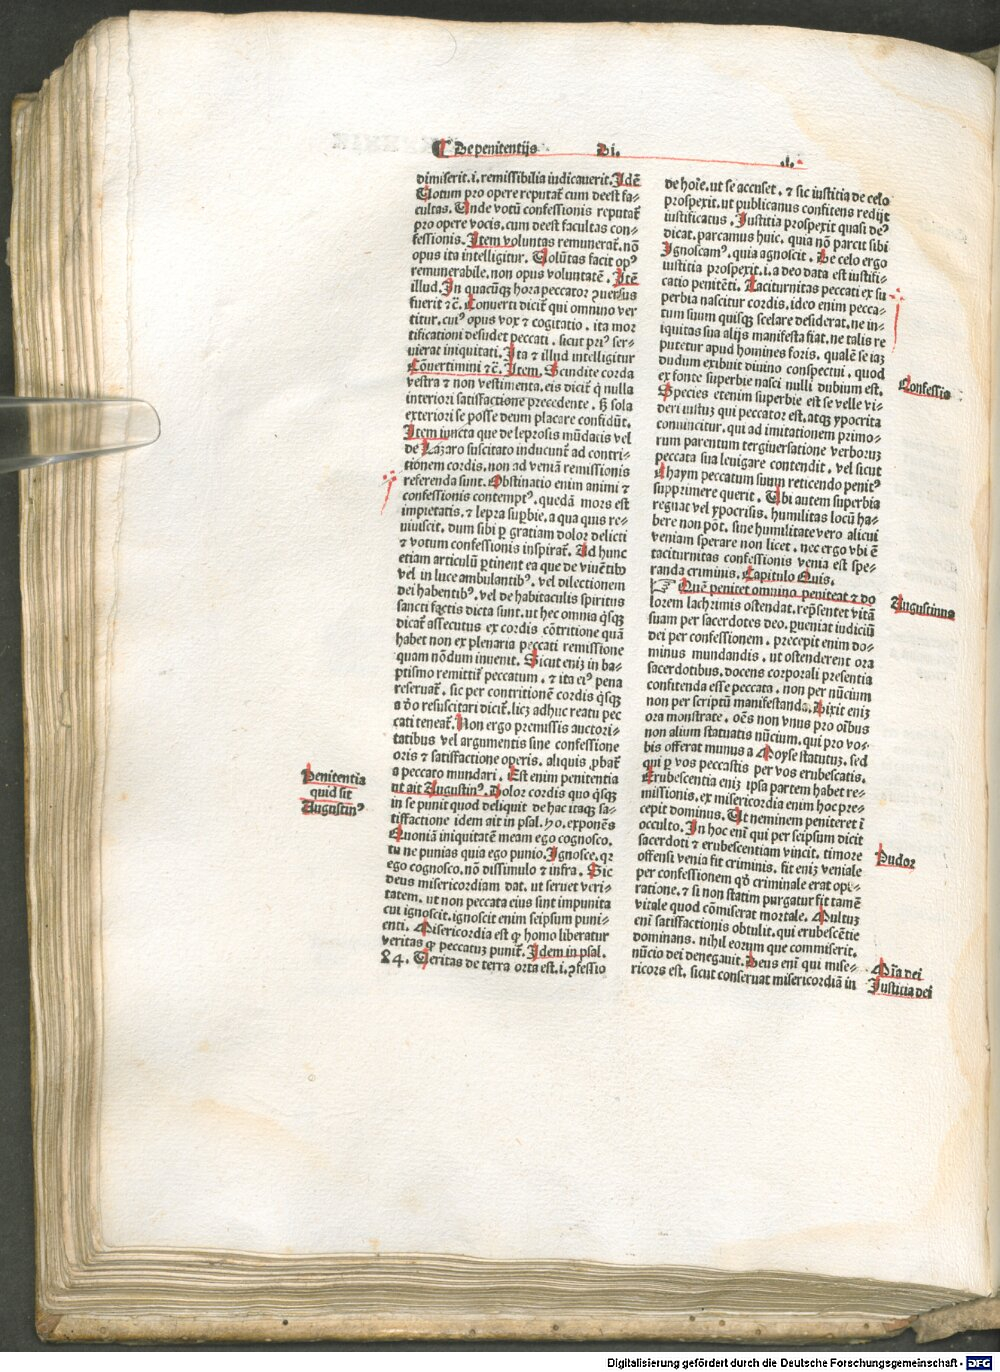 ¶ De penitentijs Di. .i.
dimiserit.i.remissibilia iudicauerit. Idē
Uotum pro opere reputat̄ cum deest fa-
cultas. Unde votū confessionis reputat̄
pro opere vocis.cum deest facultas con-
fessionis. Item voluntas remunerat̄.nō
opus ita intelligitur. Uolūtas facit opꝰ
remunerabile.non opus voluntatē. Itē
illud. In quacūqꝫ hora peccator ꝯuersus
fuerit ⁊c̄. Conuerti dicit̄ qui omnino ver
titur.cuiꝰ opus vox ⁊ cogitatio. ita mor
tificationi desudet peccati. sicut priꝰ ser-
uierat iniquitati. Ita ⁊ illud intelligitur
Cōuertimini ⁊c̄. Item. Scindite corda
vestra ⁊ non vestimenta.eis dicit̄ ꝙ nulla
interiori satisfactione precedente. sꝫ sola
exteriori se posse deum placare confidūt.
Item iuncta que de leprosis mūdatis vel
de Lazaro suscitato inducunt̄ ad contri-
tionem cordis.non ad veniā remissionis
referenda sunt. Obstinatio enim animi ⁊
confessionis contemptꝰ. quedā mors est
impietatis. ⁊ lepra supꝑbie.a qua quis re-
uiuiscit. dum sibi ꝑ gratiam dolor delicti
⁊ votum confessionis inspirat̄. Ad hunc
etiam articulū ꝑtinent ea que de viuētibꝰ
vel in luce ambulantibꝰ. vel dilectionem
dei habentibꝰ. vel de habitaculis spiritus
sancti factis dicta sunt. ut hec omnia qͥsqꝫ
dicat̄ assecutus ex cordis cōtritione quā
habet non ex plenaria peccati remissione
quam nōdum inuenit. Sicut eniꝫ in ba-
ptismo remittit̄ peccatum. ⁊ ita eiꝰ pena
reseruat̄. sic per contritionē cordis qͥsqꝫ
a deo resuscitari dicit̄.licꝫ adhuc reatu pec
cati teneat̄. Non ergo premissis auctori-
tatibus vel argumentis sine confessione
oris ⁊ satisfactione operis. aliquis ꝓbat̄
a peccato mundari. Est enim penitentia
ut ait Augustinꝰ. Dolor cordis quo qͥsqꝫ
in se punit quod deliquit de hac itaqꝫ sa-
tisfactione idem ait in psal.50.exponēs
Quoniā iniquitatē meam ego cognosco.
tu ne punias quia ego punio. Ignosce.qꝛ
ego cognosco.nō dissimulo ⁊ infra. Sic
deus misericordiam dat. ut seruet veri-
tatem. ut non peccata eius sint impunita
cui ignoscit.ignoscit enim seipsum puni-
enti. Misericordia est ꝙ homo liberatur
veritas ꝙ peccatuꝫ punit̄. Idem in psal.
84. Ueritas de terra orta est.i.ꝯfessio
de hoīe.ut se accuset. ⁊ sic iustitia de celo
prospexit.ut publicanus confitens redijt
iustificatus. Iustitia prospexit quasi deꝰ
dicat.parcamus huic. quia nō parcit sibi
Ignoscamꝰ.quia agnoscit. De celo ergo
iustitia prospexit.i.a deo data est iustifi-
catio penitēti. Taciturnitas peccati ex su
perbia nascitur cordis.ideo enim pecca-
tum suum quisqꝫ scelare desiderat.ne in-
iquitas sua alijs manifesta fiat.ne talis re
putetur apud homines foris. qualē se iaꝫ
dudum exibuit diuino conspectui. quod
ex fonte superbie nasci nulli dubium est.
Species etenim superbie est se velle vi-
deri iustuꝫ qui peccator est.atqꝫ ypocrita
conuincitur.qui ad imitationem primo-
rum parentum tergiuersatione verboruꝫ
peccata sua leuigare contendit. vel sicut
Chaym peccatum suum reticendo penitꝰ
supprimere querit. Ubi autem superbia
regnat vel ypocrisis. humilitas locū ha-
bere non pōt. sine humilitate vero alicui
veniam sperare non licet. nec ergo vbi ē
taciturnitas confessionis venia est spe-
randa criminis. Capitulo Quis.
☞ Quē penitet omnino peniteat ⁊ do
lorem lachrimis ostendat.repn̄sentet vitā
suam per sacerdotes deo. ꝓueniat iudiciū
dei per confessionem. precepit enim do-
minus mundandis. ut ostenderent ora
sacerdotibus.docens corporali presentia
confitenda esse peccata. non per nūcium
non per scriptū manifestanda. Dixit eniꝫ
ora monstrate. oēs non vnus pro oībus
non alium statuatis nūcium.qui pro vo-
bis offerat munus a Moyse statutuꝫ. sed
qui ꝑ vos peccastis per vos erubescatis.
Erubescentia eniꝫ ipsa partem habet re-
missionis.ex misericordia enim hoc pre-
cepit dominus. Ut neminem peniteret ī
occulto. In hoc enī qui per seipsum dicit
sacerdoti ⁊ erubescentiam vincit. timore
offensi venia fit criminis. fit eniꝫ veniale
per confessionem qd̄ criminale erat ope-
ratione. ⁊ si non statim purgatur fit tamē
veniale quod cōmiserat mortale. Multuꝫ
enī satisfactionis obtulit.qui erubescētie
dominans. nihil eorum que commiserit.
nūcio dei denegauit. Deus enī qui mise-
ricors est. sicut conseruat misericordiā in
Penitentia
quid sit
Augustinꝰ
Confessio
Augustinus
Pudor
Mīa dei
Iusticia dei
Digitalisierung gefördert durch die Deutsche Forschungsgemeinschaft - DFG